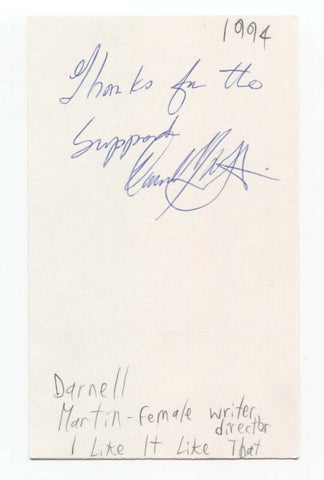 1994
Thanks for the
Support
Darnell
Martin - Female writer
director
I Like It Like That